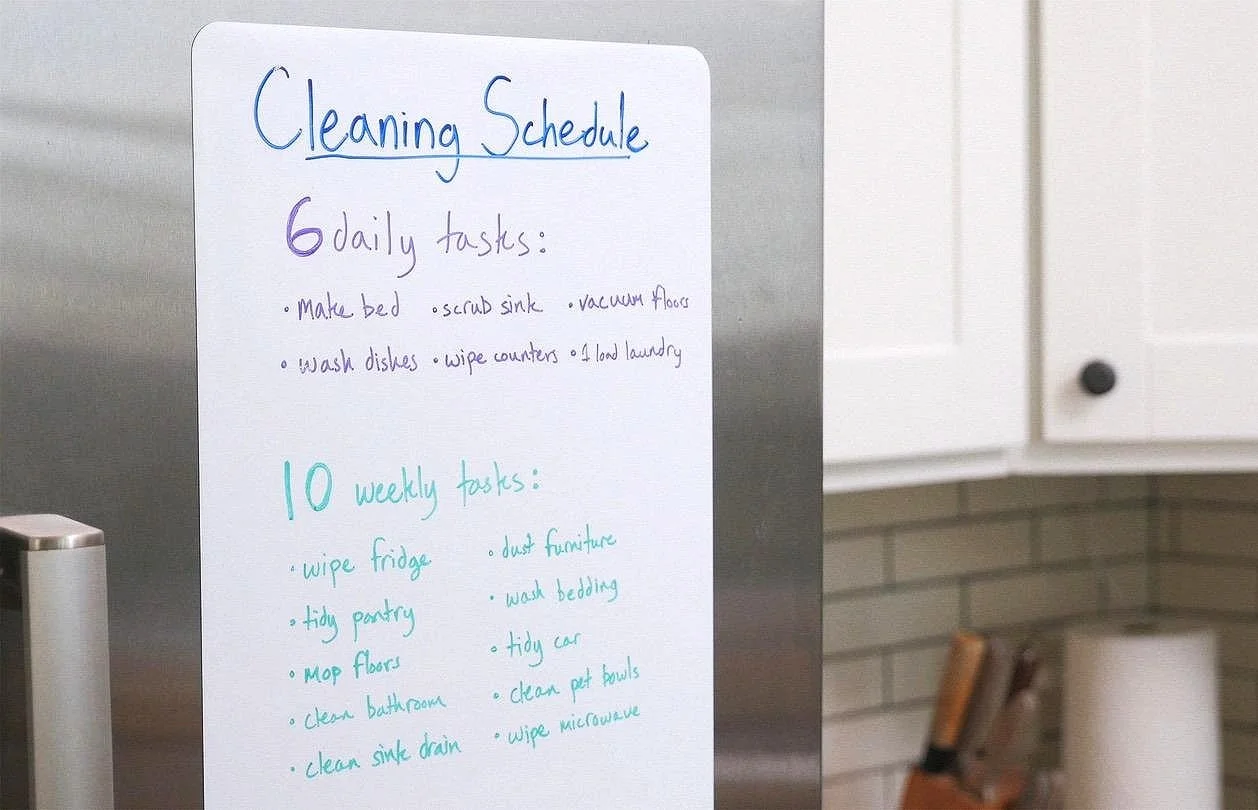 Cleaning Schedule
6 daily tasks:
• make bed • scrub sink • vacuum floors
• wash dishes • wipe counters • 1 load laundry
10 weekly tasks:
• wipe fridge
• tidy pantry
• mop floors
• clean bathroom
• clean sink drain
• dust furniture
• wash bedding
• tidy car
• clean pet bowls
• wipe microwave